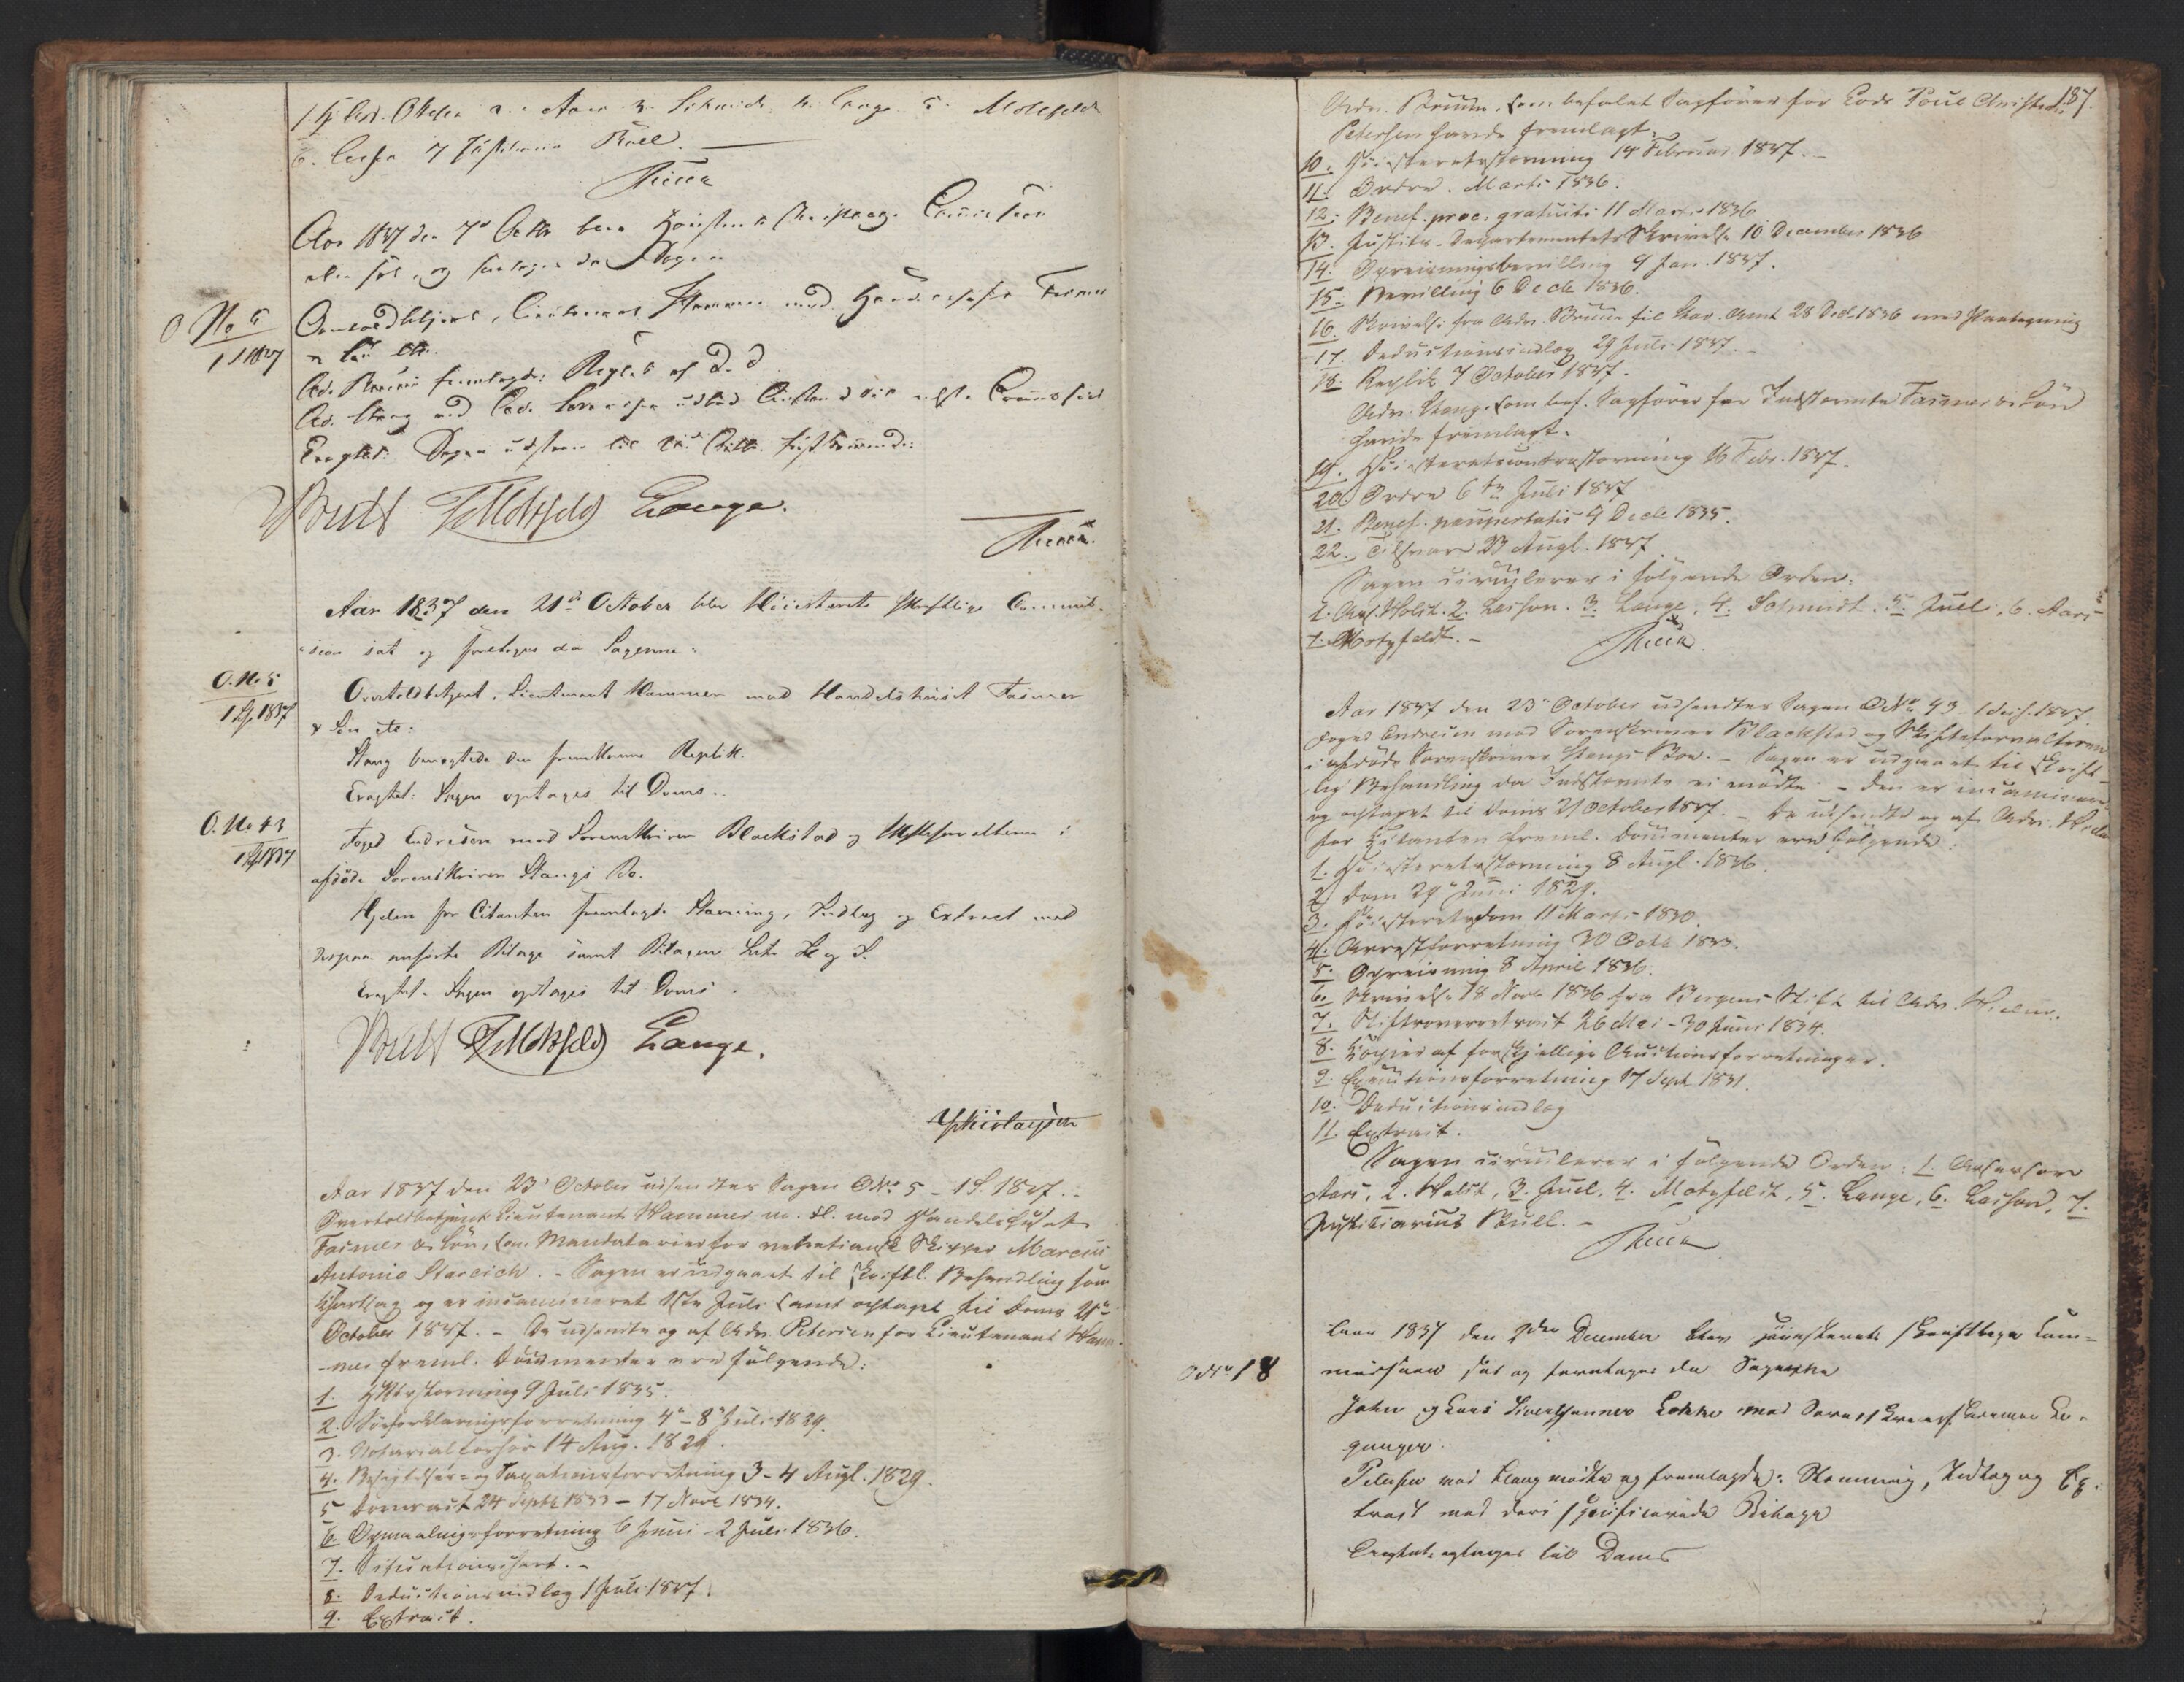 6. Lasson 7 Justitiarius Bull.
Aar 1837 den 7de Octbr blev Høiesterets skriftlige Commission
atter sat, og foretoges da Sagen
O No 5
1 S 1837
Overtoldbetjent, Lieutenant Hammer mod Handelshuset Fasmer
& Søn etc.
Adv. Bruun fremlagde Replik af D. D.
Eragtet: Sagen udstaar til
Bull FMotzfeldt Lange.
Aar 1837 den 21de October blev Høiesterets skriftlige Commis-
sion sat og foretoges da Sagerne:
O. No 5
1 S. 1837
Overtoldbetjent, Lieutenant Hammer mod Handelshuset Fasmer
& Søn etc:
Stang benegtede den fremkomne Replik.
Eragtet: Sagen optages til Doms.
O. No 43
1 S 1837
Foged Endresen mod Sorenskriver Blackstad og Skifteforvalteren i
afdøde Sorenskriver Stangs Bo.
Hjelm for Citanten fremlagde Stævning, Indlæg og Extract med
derpaa anførte Bilage samt Bilagene Litr. H og I.
Eragtet. Sagen optages til Doms.
Bull FMotzfeldt Lange.
Aar 1837 den 23de October udsendtes Sagen O No 5 - 1 S. 1837.
Overtoldbetjent Lieutenant Hammer m. fl. mod Handelshuset
Fasmer & Søn, som Mandatarier for Skipper Marcus
Antonio Starcich. - Sagen er udgaaet til skriftl. Behandling som
og er incamineret 1ste Juli samt optaget til Doms 21de
October 1837. - De udsendte og af Adv. Petersen for Lieutenant Ham-
mer freml. Documenter ere følgende:
1. Høiesteretsstævning 9 Juli 1835.
2. Søforklaringsforretning 4de - 8de Juli 1829.
3. Notarialforhør 14 Aug. 1829.
4. Besigtelses- og Taxationsforretning 3 - 4 Augt. 1829.
5 Domsact 24 Septbr 1833 - 17 Novbr 1834.
6. Opmaalingsforretning 6 Juni - 2 Juli 1836.
7. Situationskart. -
8. Deductionsindlæg 1 Juli 1837.
9. Extract.
187.
Adv. Bruun, som befalet Sagfører for Lods Poul Christian
Petersen havde fremlagt:
10. Høiesteretsstævning 14 Februar 1837. -
11. Ordre. Marts 1836.
12. Benef. proc. gratuiti 11 Marts 1836
13. Justits-Departementets Skrivelse 10 December 1836
14. Opreisningsbevilling 9 Jan. 1837.
15. Bevilling 6 Decbr 1836.
16. Skrivelse fra Adv. Bruun til Stav. Amt 28 Decbr 1836 med Paategning
17. Deductionsindlæg 29 Juli 1837. -
18. Replik 7 October 1837.
Adv. Stang, som bef. Sagfører for Indstevnte Fasmer & Søn
havde fremlagt.
19. Høiesteretscontrastævning 16 Febr. 1837.
20. Ordre 6te Juli 1837
21. Benef. paupertatis 9 Decbr 1835.
22. Tilsvar 23 Augt. 1837
Sagen circulerer i følgende Orden:
1. Ass. Holst. 2. Lasson. 3. Lange, 4. Schmidt. 5. Juel, 6. Aars
7. Motzfeldt. -
Aar 1837 den 23de October udsendtes Sagen O No 43 - 1 S. 1837.
Foged Endresen mod Sorenskriver Blackstad og Skifteforvalteren
i afdøde Sorenskriver Stangs Bo. - Sagen er udgaaet til skrift-
lig Behandling da Indstevnte ei mødte. - Den er incamineret
og optaget til Doms 21 October 1837. - De udsendte og af Adv. Hjelm
for Citanten freml. Documenter ere følgende:
1. Høiesteretsstævning 8 Augt. 1836.
2. Dom 29de Juni 1829.
3. Høiesteretsdom 11 Marts 1830.
4. Arrestforretning 30 Octbr 1833.
5. Opreisning 8 April 1836.
6. Skrivelse 18 Novbr 1836 fra Bergens Stift til Adv. Hjelm.
7. Stiftsoverretsact 26 Mai - 30 Juni 1834.
8. Copier af forskjellige Auctionsforretninger.
9. Executionsforretning 17 Septbr 1831.
10. Deductionsindlæg
11. Extract.
Sagen circulerer i følgende Orden: 1. Assessor
Aars, 2. Holst, 3. Juel, 4. Motzfeldt, 5. Lange, 6. Lasson, 7.
Justitiarius Bull. -
Aar 1837 den 2den December blev Høiesterets skriftlige Com-
mission sat og foretoges da Sagerne
O No 18
John og Lars mod
Petersen ved Stang mødte og fremlagde: Stævning, Indlæg og Ex-
tract med deri specificerede Bilage
Eragtet: optages til Doms